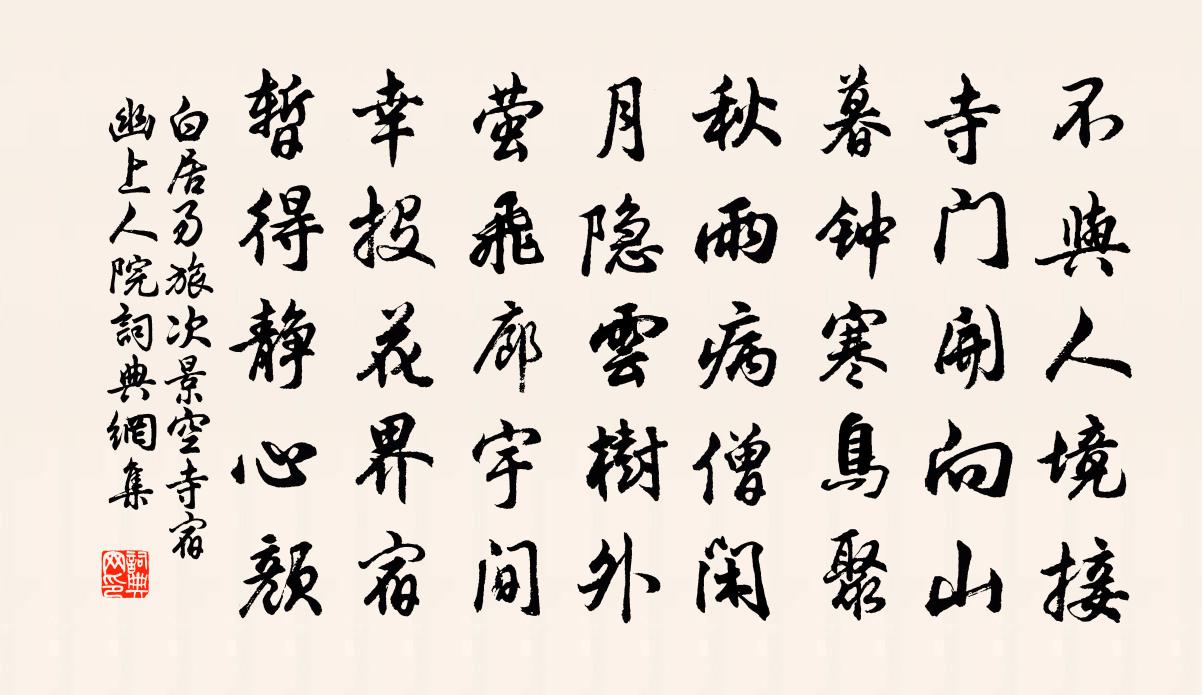 不與人境接
寺门開向山
暮钟寒鳥聚
秋雨病僧閑
月隐雲樹外
萤飛廊宇间
幸投花界宿
暫得静心顔
白居易旅次景空寺宿
幽上人院詞典網集
詞典
网印